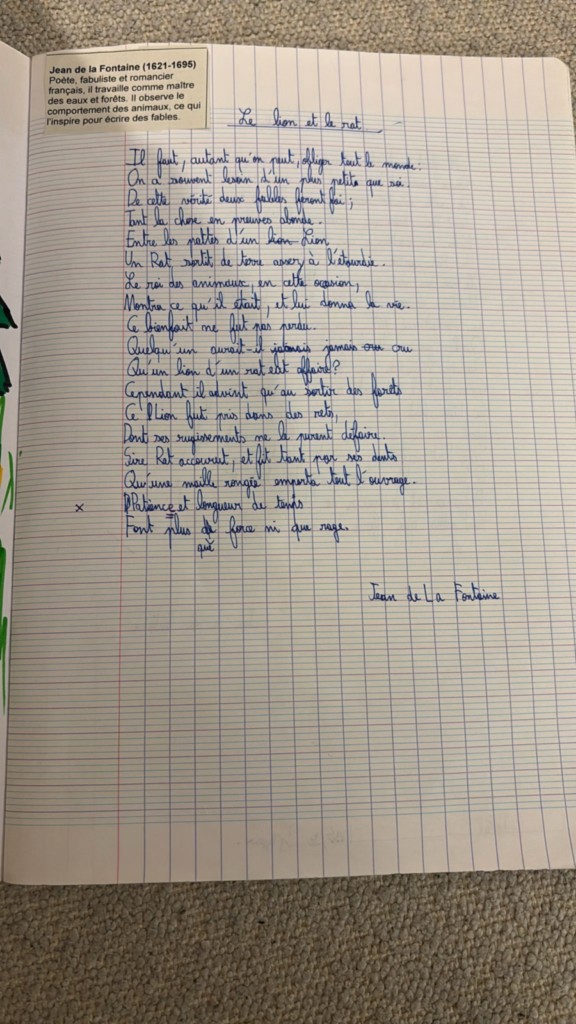 Jean de la Fontaine (1621-1695)
Poète, fabuliste et romancier
français, il travaille comme maître
des eaux et forêts. Il observe le
comportement des animaux, ce qui
l'inspire pour écrire des fables.
Le lion et le rat
Il faut, autant qu'on peut, obliger tout le monde :
On a souvent besoin d'un plus petit que soi.
De cette vérité deux fables feront foi ;
Tant la chose en preuves abonde.
Entre les pattes d'un lion Lion
Un Rat sortit de terre assez à l'étourdie.
Le roi des animaux, en cette occasion,
Montra ce qu'il était, et lui donna la vie.
Ce bienfait ne fut pas perdu.
Quelqu'un aurait-il jamais cru
Qu'un lion d'un rat eût affaire ?
Cependant il advint qu'au sortir des forêts
Ce Lion fut pris dans des rets,
Dont ses rugissements ne le purent défaire.
Sire Rat accourut, et fit tant par ses dents
Qu'une maille rongée emporta tout l'ouvrage.
x Patience et longueur de temps
Font plus de force ni que rage.
que
Jean de La Fontaine